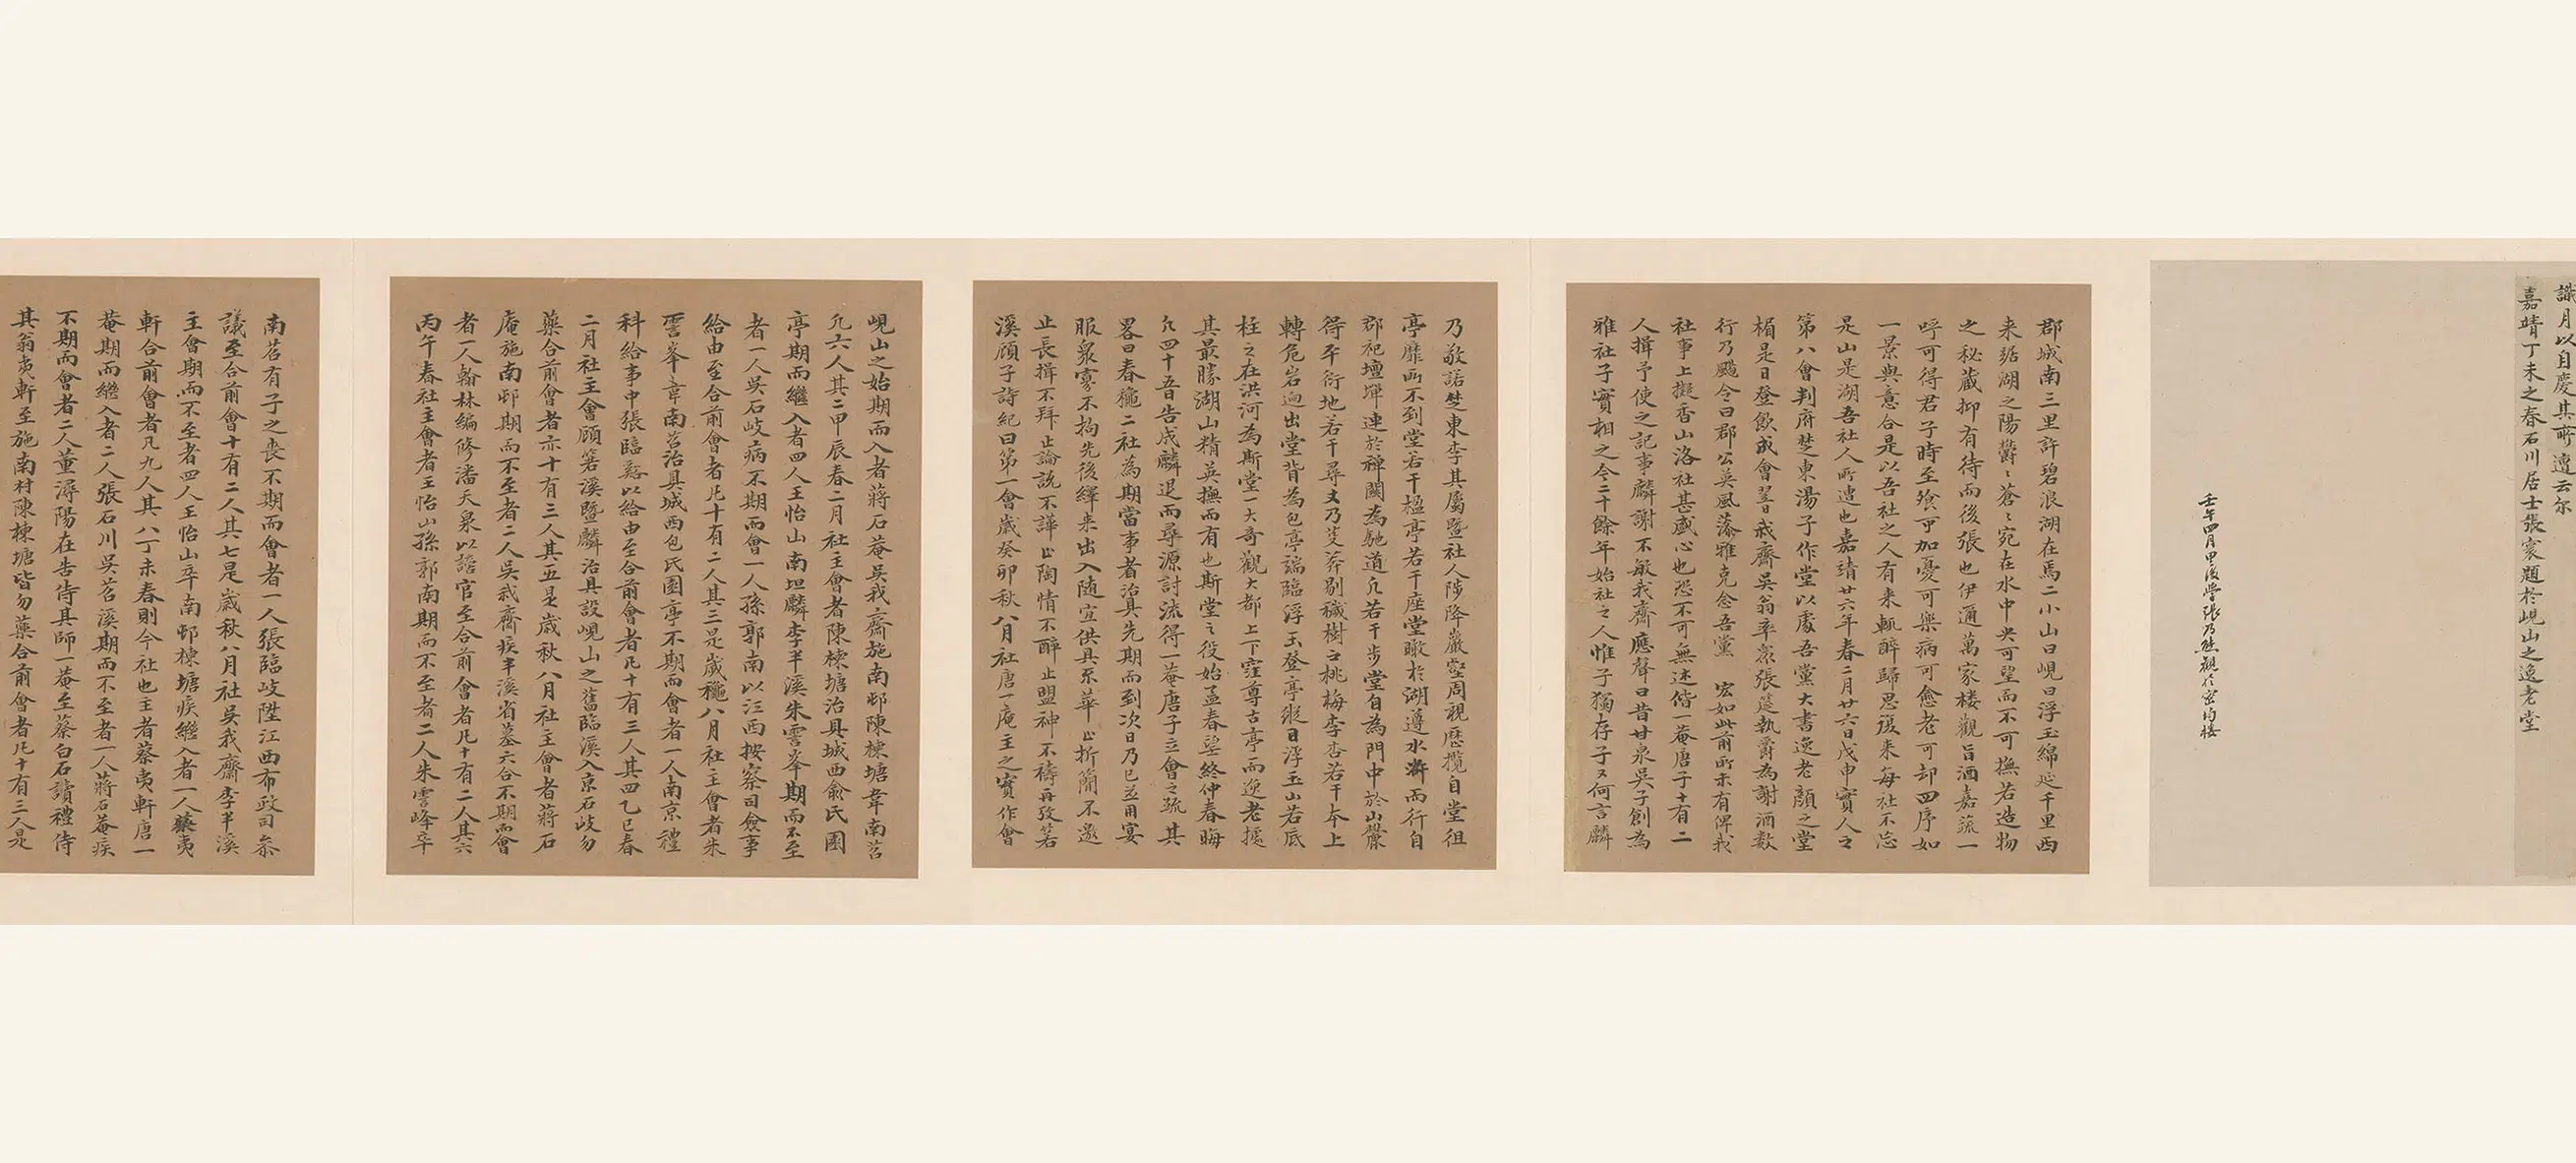 識月以自慶其所遭云尔
嘉靖丁未之春石川居士張寰題於峴山之逸老堂
壬午四月甲後學張乃熊觀於密均樓
郡城南三里許碧浪湖在焉二小山曰峴曰浮玉綿延千里西
来踞湖之陽欝〻蒼〻宛在水中央可望而不可撫若造物
之秘蔵抑有待而後張也伊邇萬家楼觀旨酒嘉蔬一
呼可得君子時至飱可加憂可樂病可愈老可却四序如
一景與意合是以吾社之人有来輒醉歸思復来每社不忘
是山是湖吾社人所遭也嘉靖廿六年春二月廿六日戊申實人之
第八會判府楚東湯子作堂以處吾黨大書逸老顏之堂
楣是日登飲成會翌日我齋吳翁率衆張筵執爵為謝酒數
行乃颺令曰郡公英風藻雅克念吾黨 宏如此前所未有俾我
社事上擬香山洛社甚盛心也恐不可無述偕一菴唐子十有二
人揖予使之記事麟謝不敏我齋應聲曰昔甘泉吳子創為
雅社子實相之今二十餘年始社之人惟子獨存子又何言麟
乃敬諾楚東李其屬暨社人陟降巖壑周視歷攬自堂徂
亭靡所不到堂若干楹亭若干座堂瞰於湖遵水滸而行自
郡祀壇墠連於禪關為馳道凢若干步堂自為門中於山麓
得平衍地若干尋丈乃芟莽剔穢樹之桃梅李杏若干本上
轉危岩迤出堂背為包亭端臨浮玉登亭縱目浮玉山若底
柱之在洪河為斯堂一大竒觀大都上下窪尊古亭而逸老據
其最勝湖山精英撫而有也斯堂之役始孟春望終仲春晦
凢四十五日告成麟退而尋源討流得一菴唐子立會之疏其
畧曰春穐二社為期當事者治具先期而到次日乃已並用宴
服衆寡不拘先後繹来出入随宜供具系華止折簡不邀
止長揖不拜止論説不譁止陶情不醉止盟神不禱再攷箬
溪顔子詩紀曰第一會歲癸卯秋八月社唐一庵主之實作會
峴山之始期而入者蔣石菴吳我齋施南邨陳棟塘韋南苕
凢六人其二甲辰春二月社主會者陳棟塘治具城西俞氏園
亭期而繼入者四人王怡山南坦麟李半溪朱雲峯期而不至
者一人吳石岐病不期而會一人孫郭南以江西按察司僉事
給由至合前會者凢十有二人其三是歲穐八月社主會者朱
雲峯韋南苕治具城西包氏園亭不期而會者一人南京禮
科給事中張臨谿以給由至合前會者凢十有三人其四乙巳春
二月社主會顧箬溪暨麟治具設峴山之舊臨溪入京石岐勿
藥合前會者亦十有三人其五是歲秋八月社主會者蔣石
庵施南邨期而不至者二人吳我齋疾半溪省墓六合不期而會
者一人翰林編修潘天泉以謫官至合前會者凢十有二人其六
丙午春社主會者王怡山孫郭南期而不至者二人朱雲峰卒
南苕有子之喪不期而會者一人張臨岐陞江西布政司叅
議至合前會十有二人其七是歲秋八月社吳我齋李半溪
主會期而不至者四人王怡山卒南邨棟塘疾繼入者一人蔡夷
軒合前會者凡九人其八丁未春則今社也主者蔡夷軒唐一
菴期而繼入者二人張石川吳苕溪期而不至者一人蔣石菴疾
不期而會者二人董潯陽在告侍其師一菴至蔡白石讀禮侍
其翁夷軒至施南村陳棟塘皆勿藥合前會者凢十有三人是